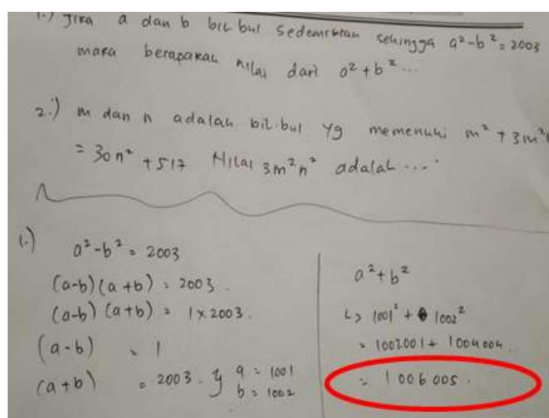 1.) Jika a dan b bil bul sedemikian sehingga a²-b² = 2003
maka berapakah nilai dari a²+b²...
2.) m dan n adalah bil.bul yg memenuhi m² + 3m²n
= 30n² + 517 Nilai 3m²n² adalah ....
1.)
a²-b² = 2003
(a-b)(a+b) = 2003.
(a-b) (a+b) = 1 x 2003.
(a-b) = 1
(a+b) = 2003. } a = 1001
b = 1002
a²+b²
↳ 1001² + 1002²
= 1002001 + 1004004.
= 1006005.